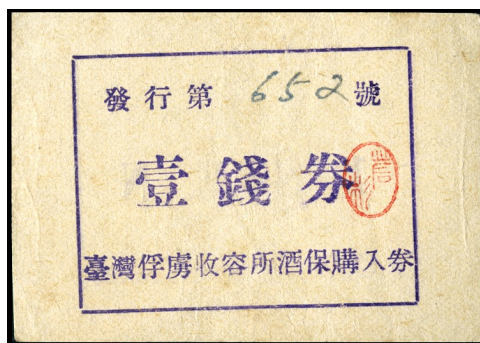 發行第 652 號
壹錢券
臺灣俘虜收容所酒保購入券